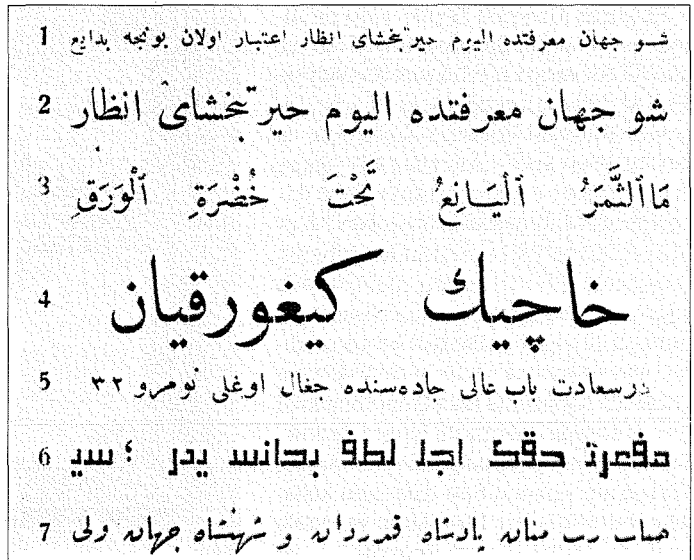 شو جهان معرفتده اليوم حيرتبخشاى انظار اعتبار اولان بونجه بدايع 1
شو جهان معرفتده اليوم حيرتبخشاى انظار 2
مَا ٱلثَّمَرُ ٱلْيَانِعُ تَحْتَ خُضْرَةِ ٱلْوَرَقِ 3
خاچيك كيغورقيان 4
درسعادت باب عالى جاده‌سنده جغال اوغلى نومرو ٣٢ 5
اجل لطف 6
رب منان پادشاه قدردان و شهنشاه جهان ولى 7